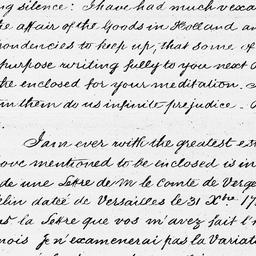 ng silence: I have had much vexa
he affair of the Goods in Holland an
pondencies to keep up, that some of
purpose writing fully to you next
the enclosed for your meditation.
in them do us infinite prejudice.
I am ever with the greatest est
ove mentioned to be enclosed is in
de une Lettre de M le Comte de Verge
elin datée de Versailles le 31 Xbre 17
us la Lettre que vos m'avez fait l'h
mois Je n'examenerai pas la Variat